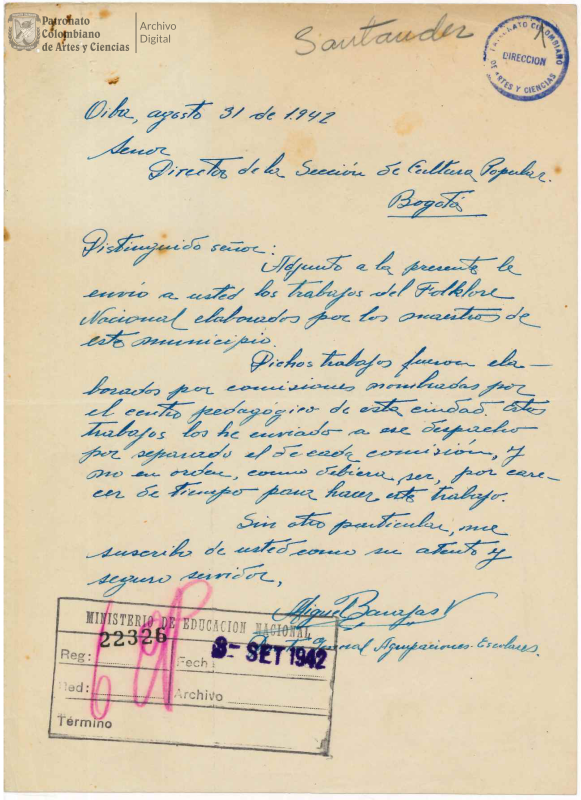 Patronato
Colombiano
de Artes y Ciencias
Archivo
Digital
Santander
PATRONATO COLOMBIANO
DIRECCION
DE ARTES Y CIENCIAS
Oiba, agosto 31 de 1942
Señor
Director de la Sección de Cultura Popular.
Bogotá
Distinguido señor:
Adjunto a la presente le
envío a usted los trabajos del Folklore
Nacional elaborados por los maestros de
este municipio.
Dichos trabajos fueron ela-
borados por comisiones nombradas por
el centro pedagógico de esta ciudad. Estos
trabajos los he enviado a ese despacho
por separado el de cada comisión, y
no en orden, como debiera ser, por care-
cer de tiempo para hacer este trabajo.
Sin otro particular, me
suscribo de usted como su atento y
seguro servidor,
Miguel Barajas V
General Agrupaciones Escolares.
MINISTERIO DE EDUCACION NACIONAL
22326
Reg:
Fech
SET 1942
Red:
Archivo
Término